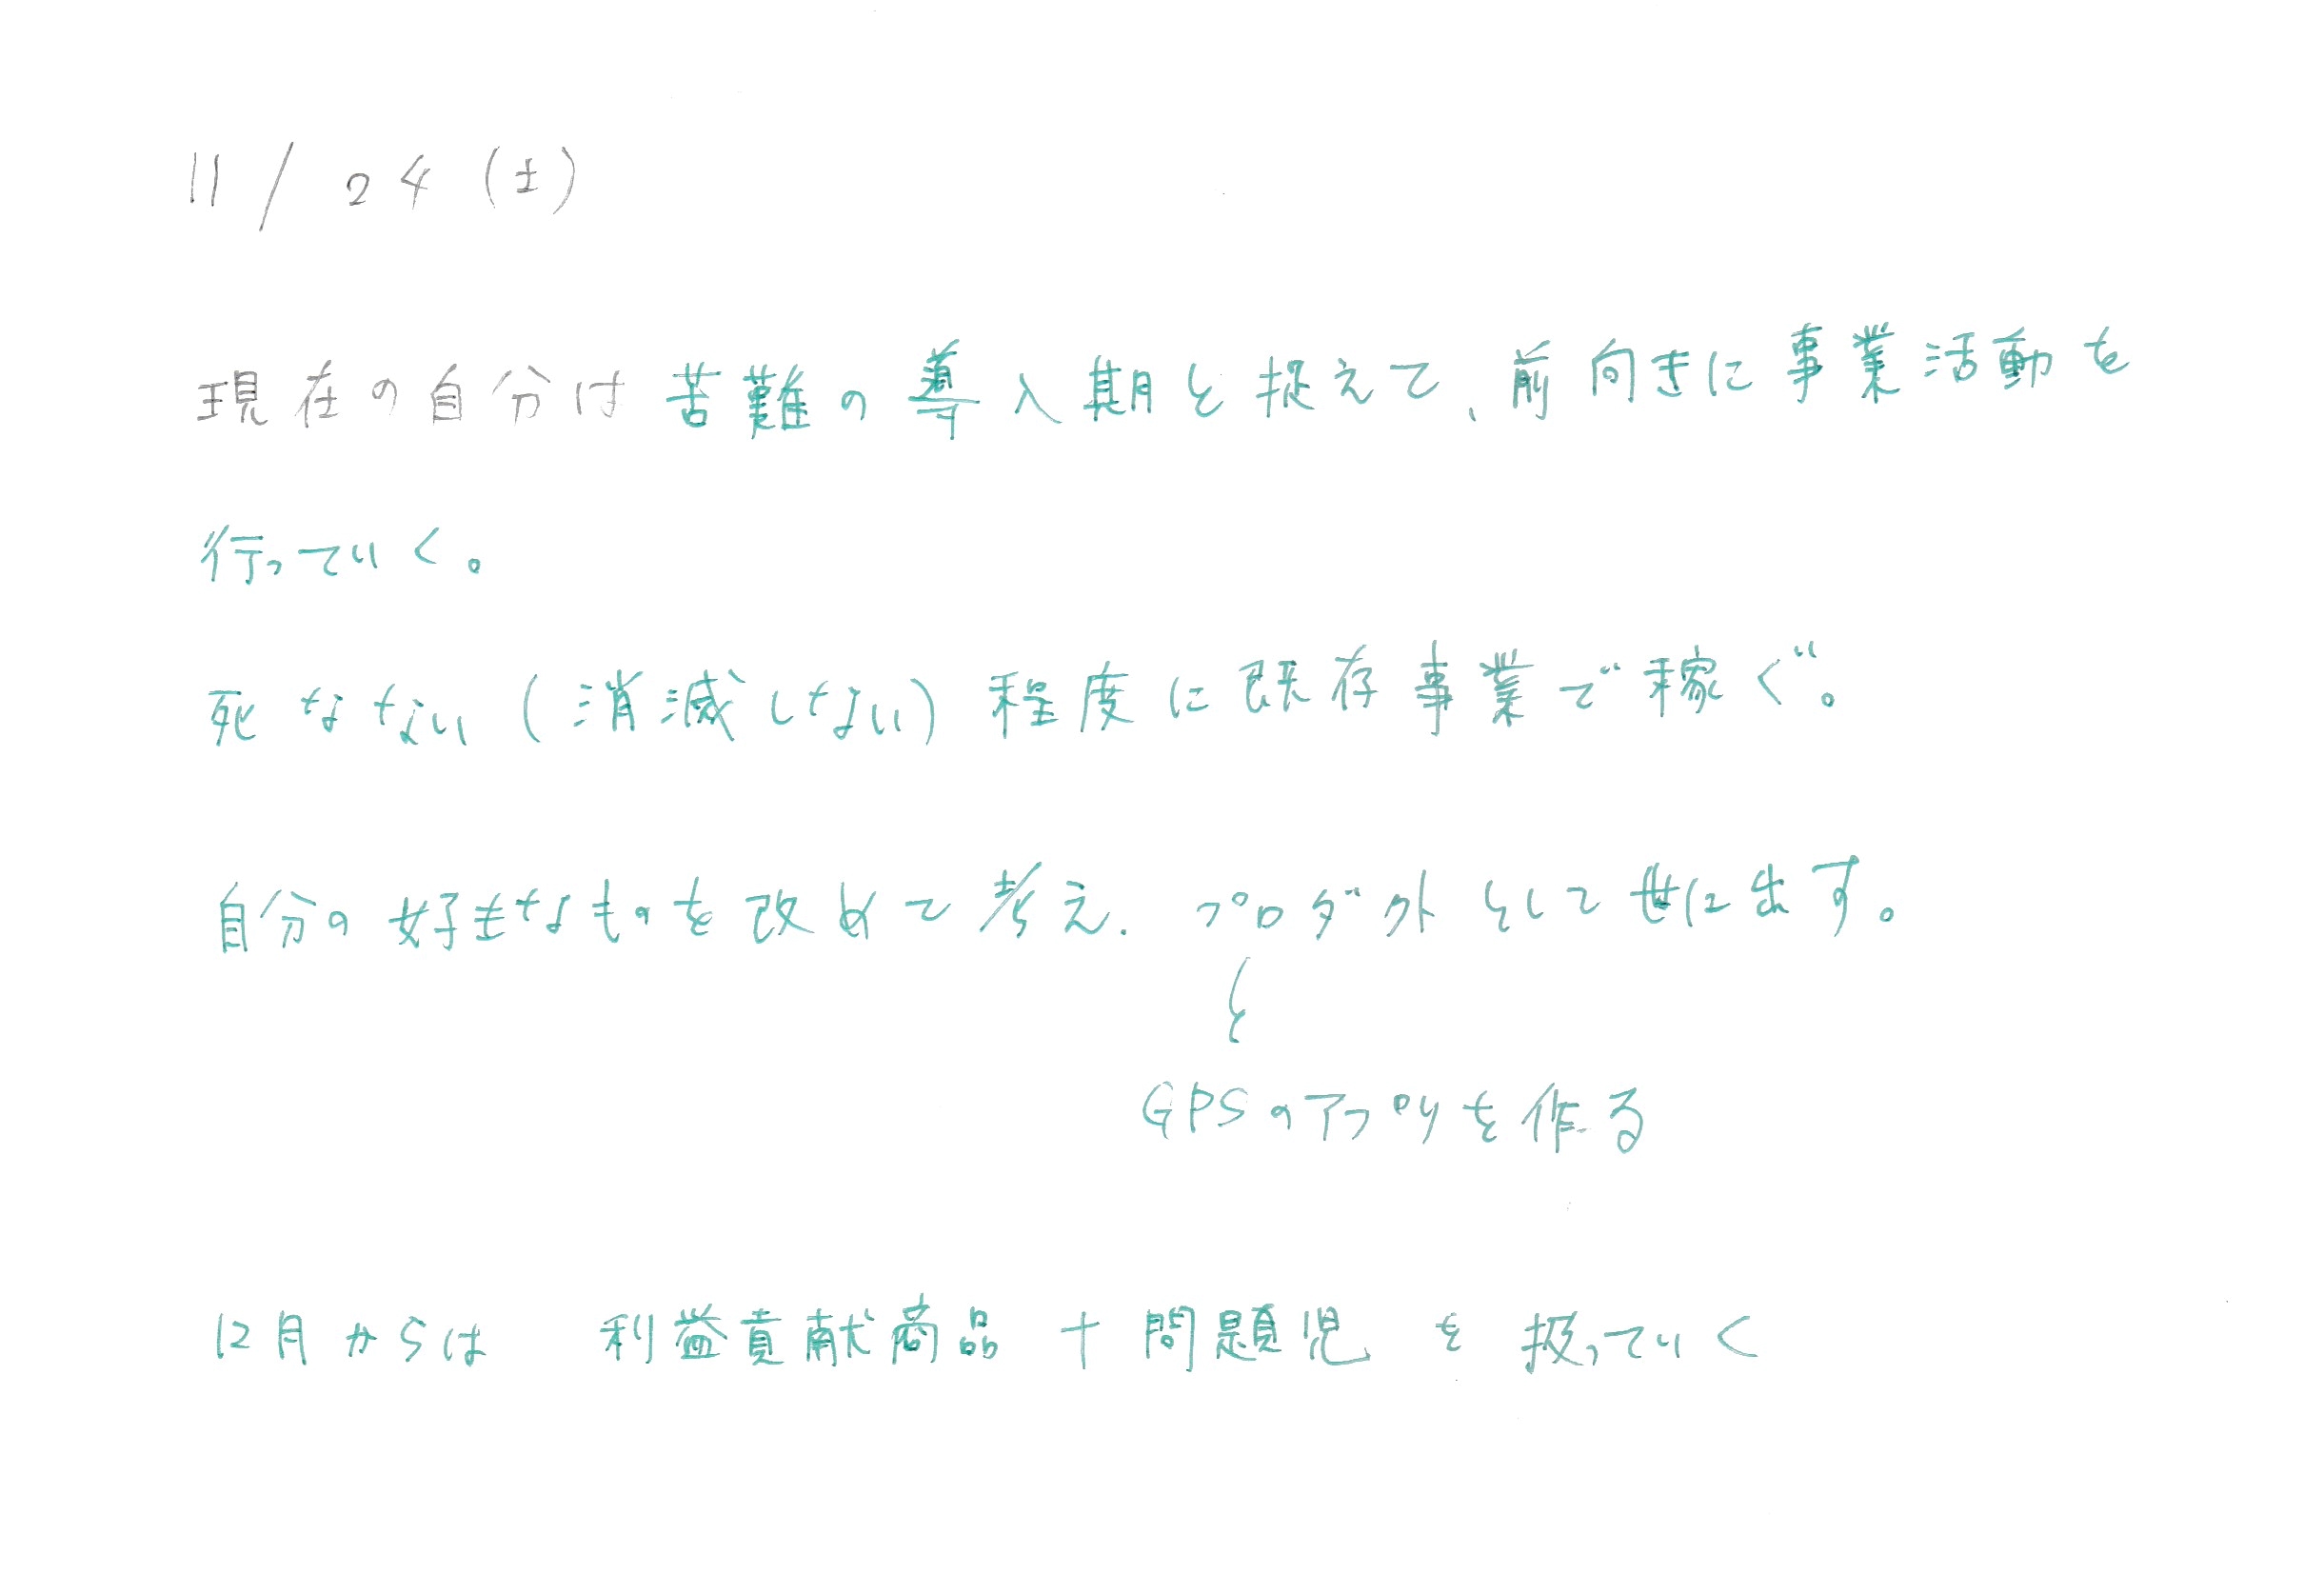 11/24(土)
現在の自分は苦難の導入期と捉えて、前向きに事業活動を
行っていく。
死なない(消滅しない)程度に既存事業で稼ぐ。
自分の好きなものを改めて考え、プロダクトとして世に出す。
GPSのアプリを作る
12月からは 利益貢献商品+問題児を扱っていく